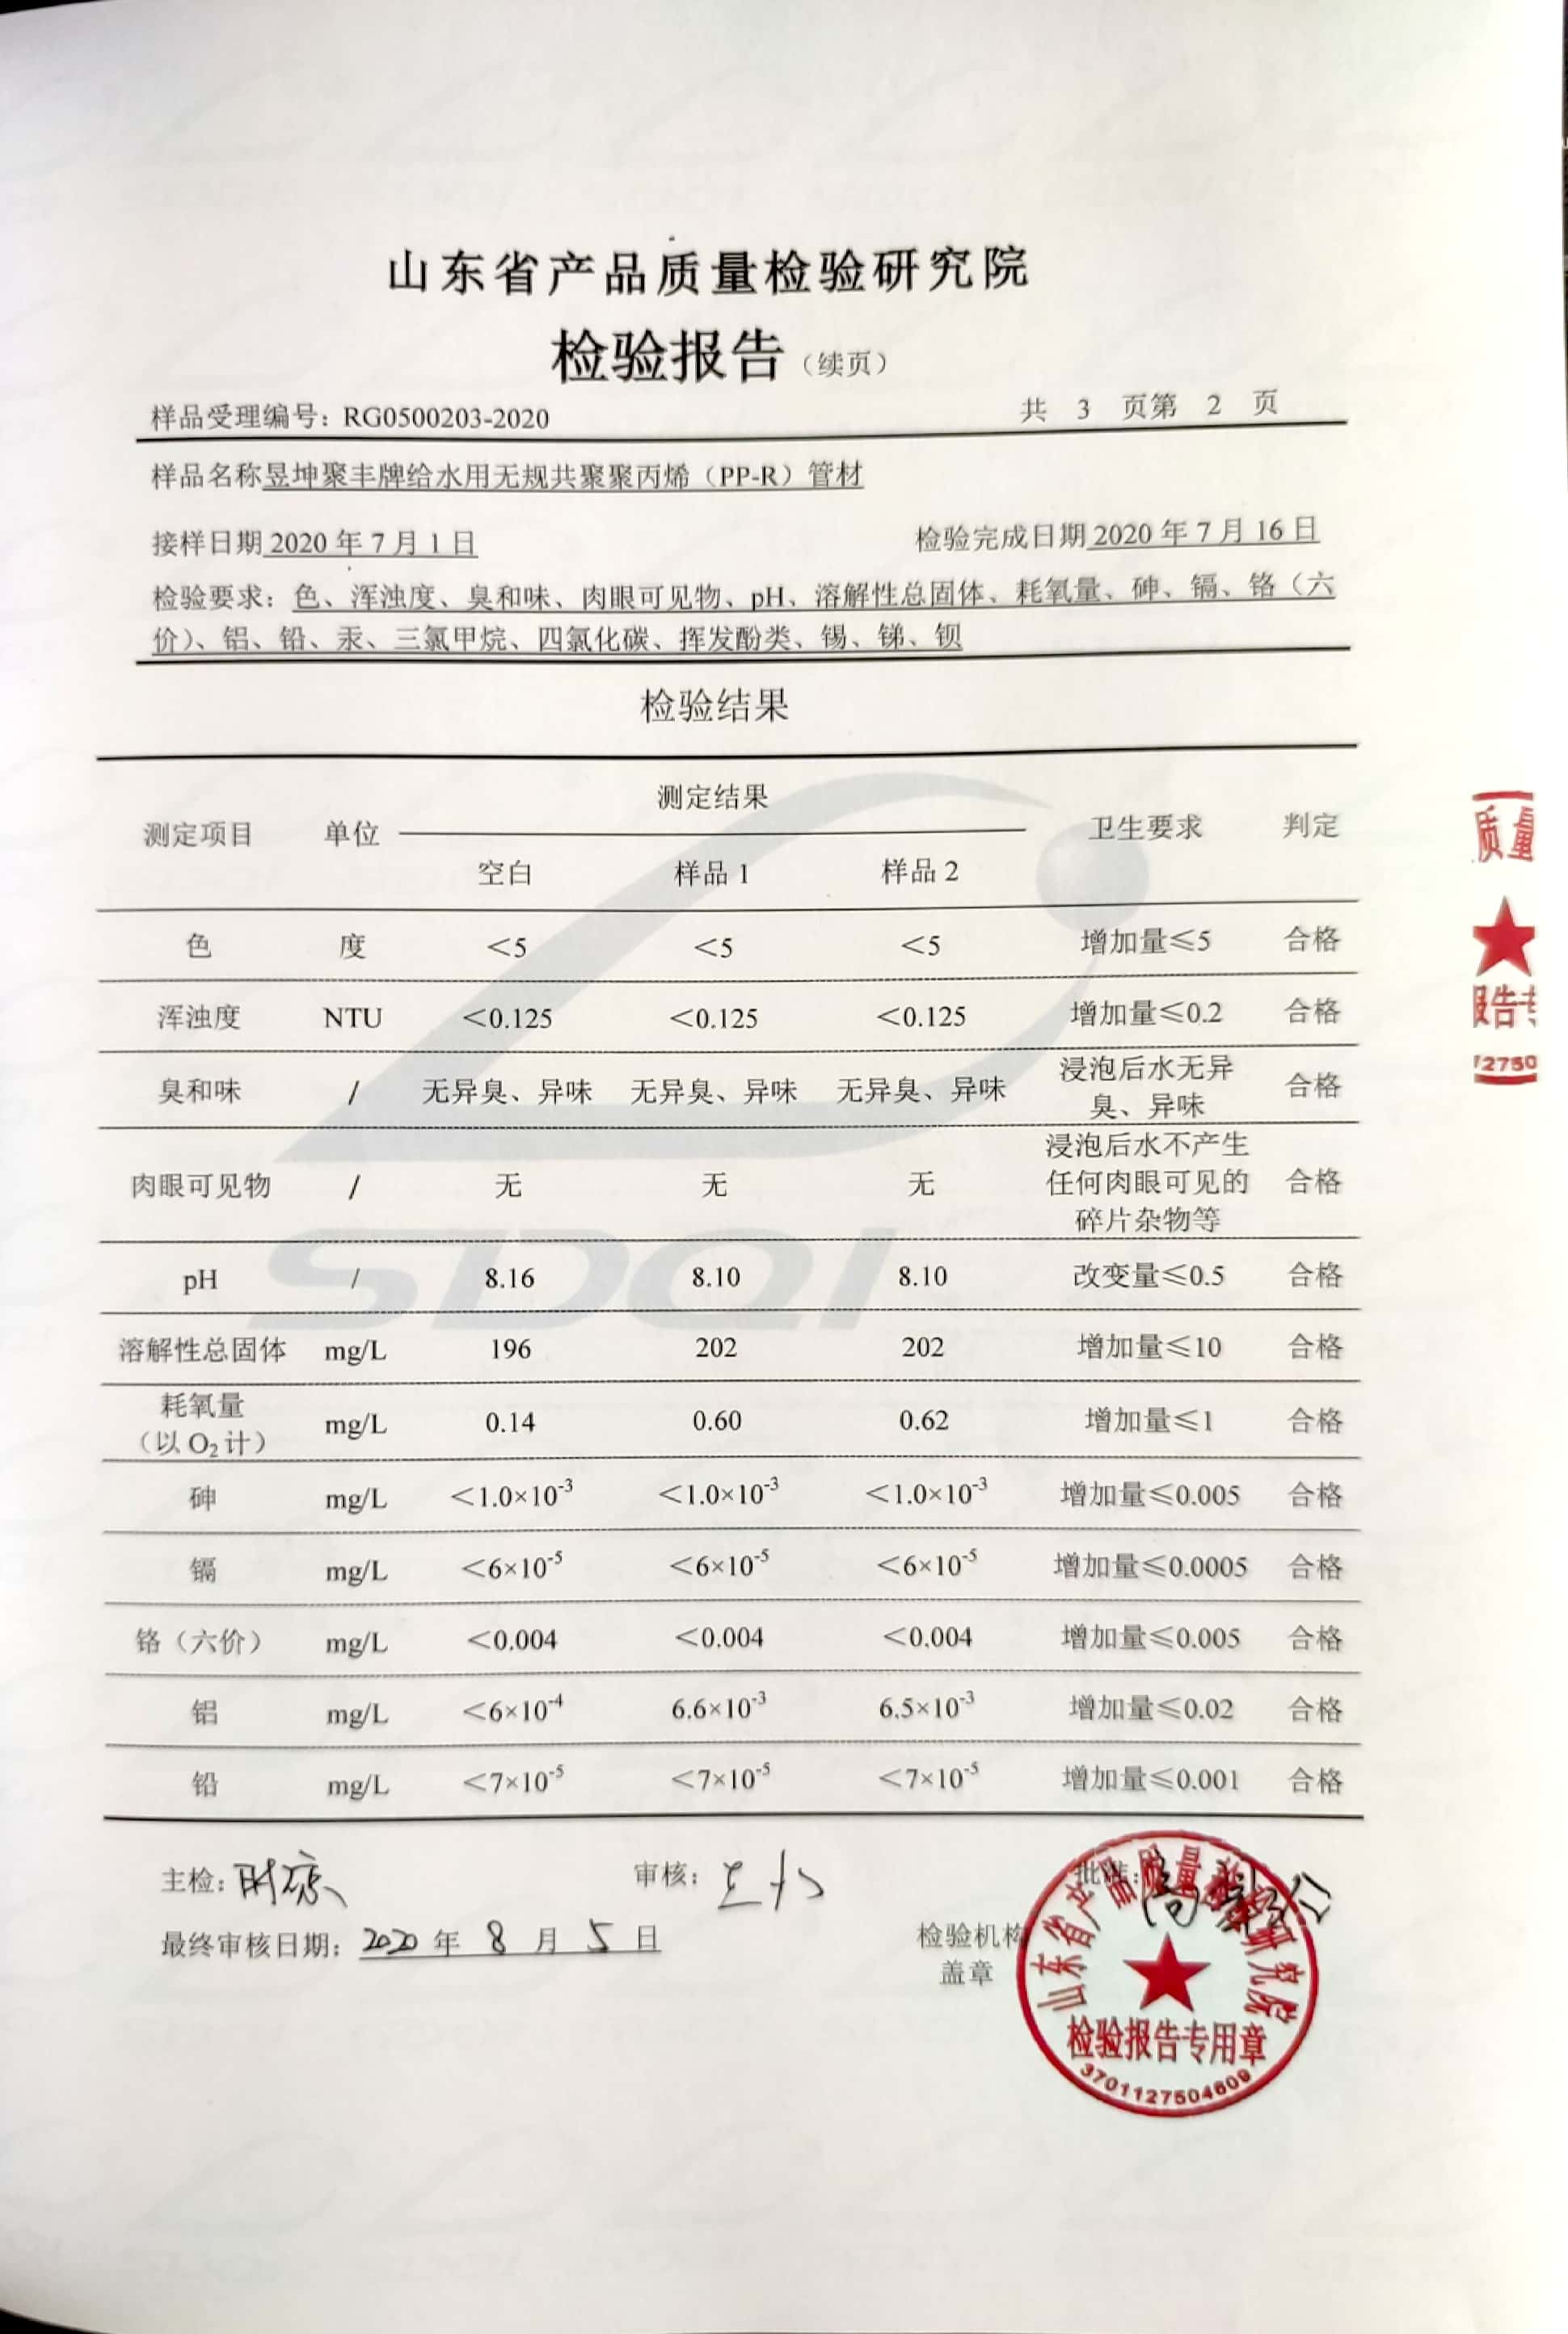 山东省产品质量检验研究院
检验报告（续页）
样品受理编号：RG0500203-2020 共 3 页第 2 页
样品名称昱坤聚丰牌给水用无规共聚聚丙烯（PP-R）管材
接样日期 2020 年 7 月 1 日 检验完成日期 2020 年 7 月 16 日
检验要求：色、浑浊度、臭和味、肉眼可见物、pH、溶解性总固体、耗氧量、砷、镉、铬（六
价）、铝、铅、汞、三氯甲烷、四氯化碳、挥发酚类、锡、锑、钡
检验结果
测定项目 单位 测定结果 卫生要求 判定
空白 样品 1 样品 2
色 度 ＜5 ＜5 ＜5 增加量≤5 合格
浑浊度 NTU ＜0.125 ＜0.125 ＜0.125 增加量≤0.2 合格
臭和味 / 无异臭、异味 无异臭、异味 无异臭、异味 浸泡后水无异
臭、异味 合格
肉眼可见物 / 无 无 无 浸泡后水不产生
任何肉眼可见的
碎片杂物等 合格
pH / 8.16 8.10 8.10 改变量≤0.5 合格
溶解性总固体 mg/L 196 202 202 增加量≤10 合格
耗氧量
（以 O₂ 计） mg/L 0.14 0.60 0.62 增加量≤1 合格
砷 mg/L ＜1.0×10⁻³ ＜1.0×10⁻³ ＜1.0×10⁻³ 增加量≤0.005 合格
镉 mg/L ＜6×10⁻⁵ ＜6×10⁻⁵ ＜6×10⁻⁵ 增加量≤0.0005 合格
铬（六价） mg/L ＜0.004 ＜0.004 ＜0.004 增加量≤0.005 合格
铝 mg/L ＜6×10⁻⁴ 6.6×10⁻³ 6.5×10⁻³ 增加量≤0.02 合格
铅 mg/L ＜7×10⁻⁵ ＜7×10⁻⁵ ＜7×10⁻⁵ 增加量≤0.001 合格
SDQI
主检： 审核： 批准：
最终审核日期：2020 年 8 月 5 日
检验机构
盖章
山东省产品质量检验研究院
检验报告专用章
3701127504609
质量
报告专
12750